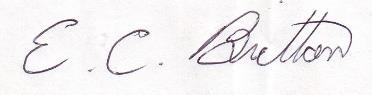 E. C. Britton